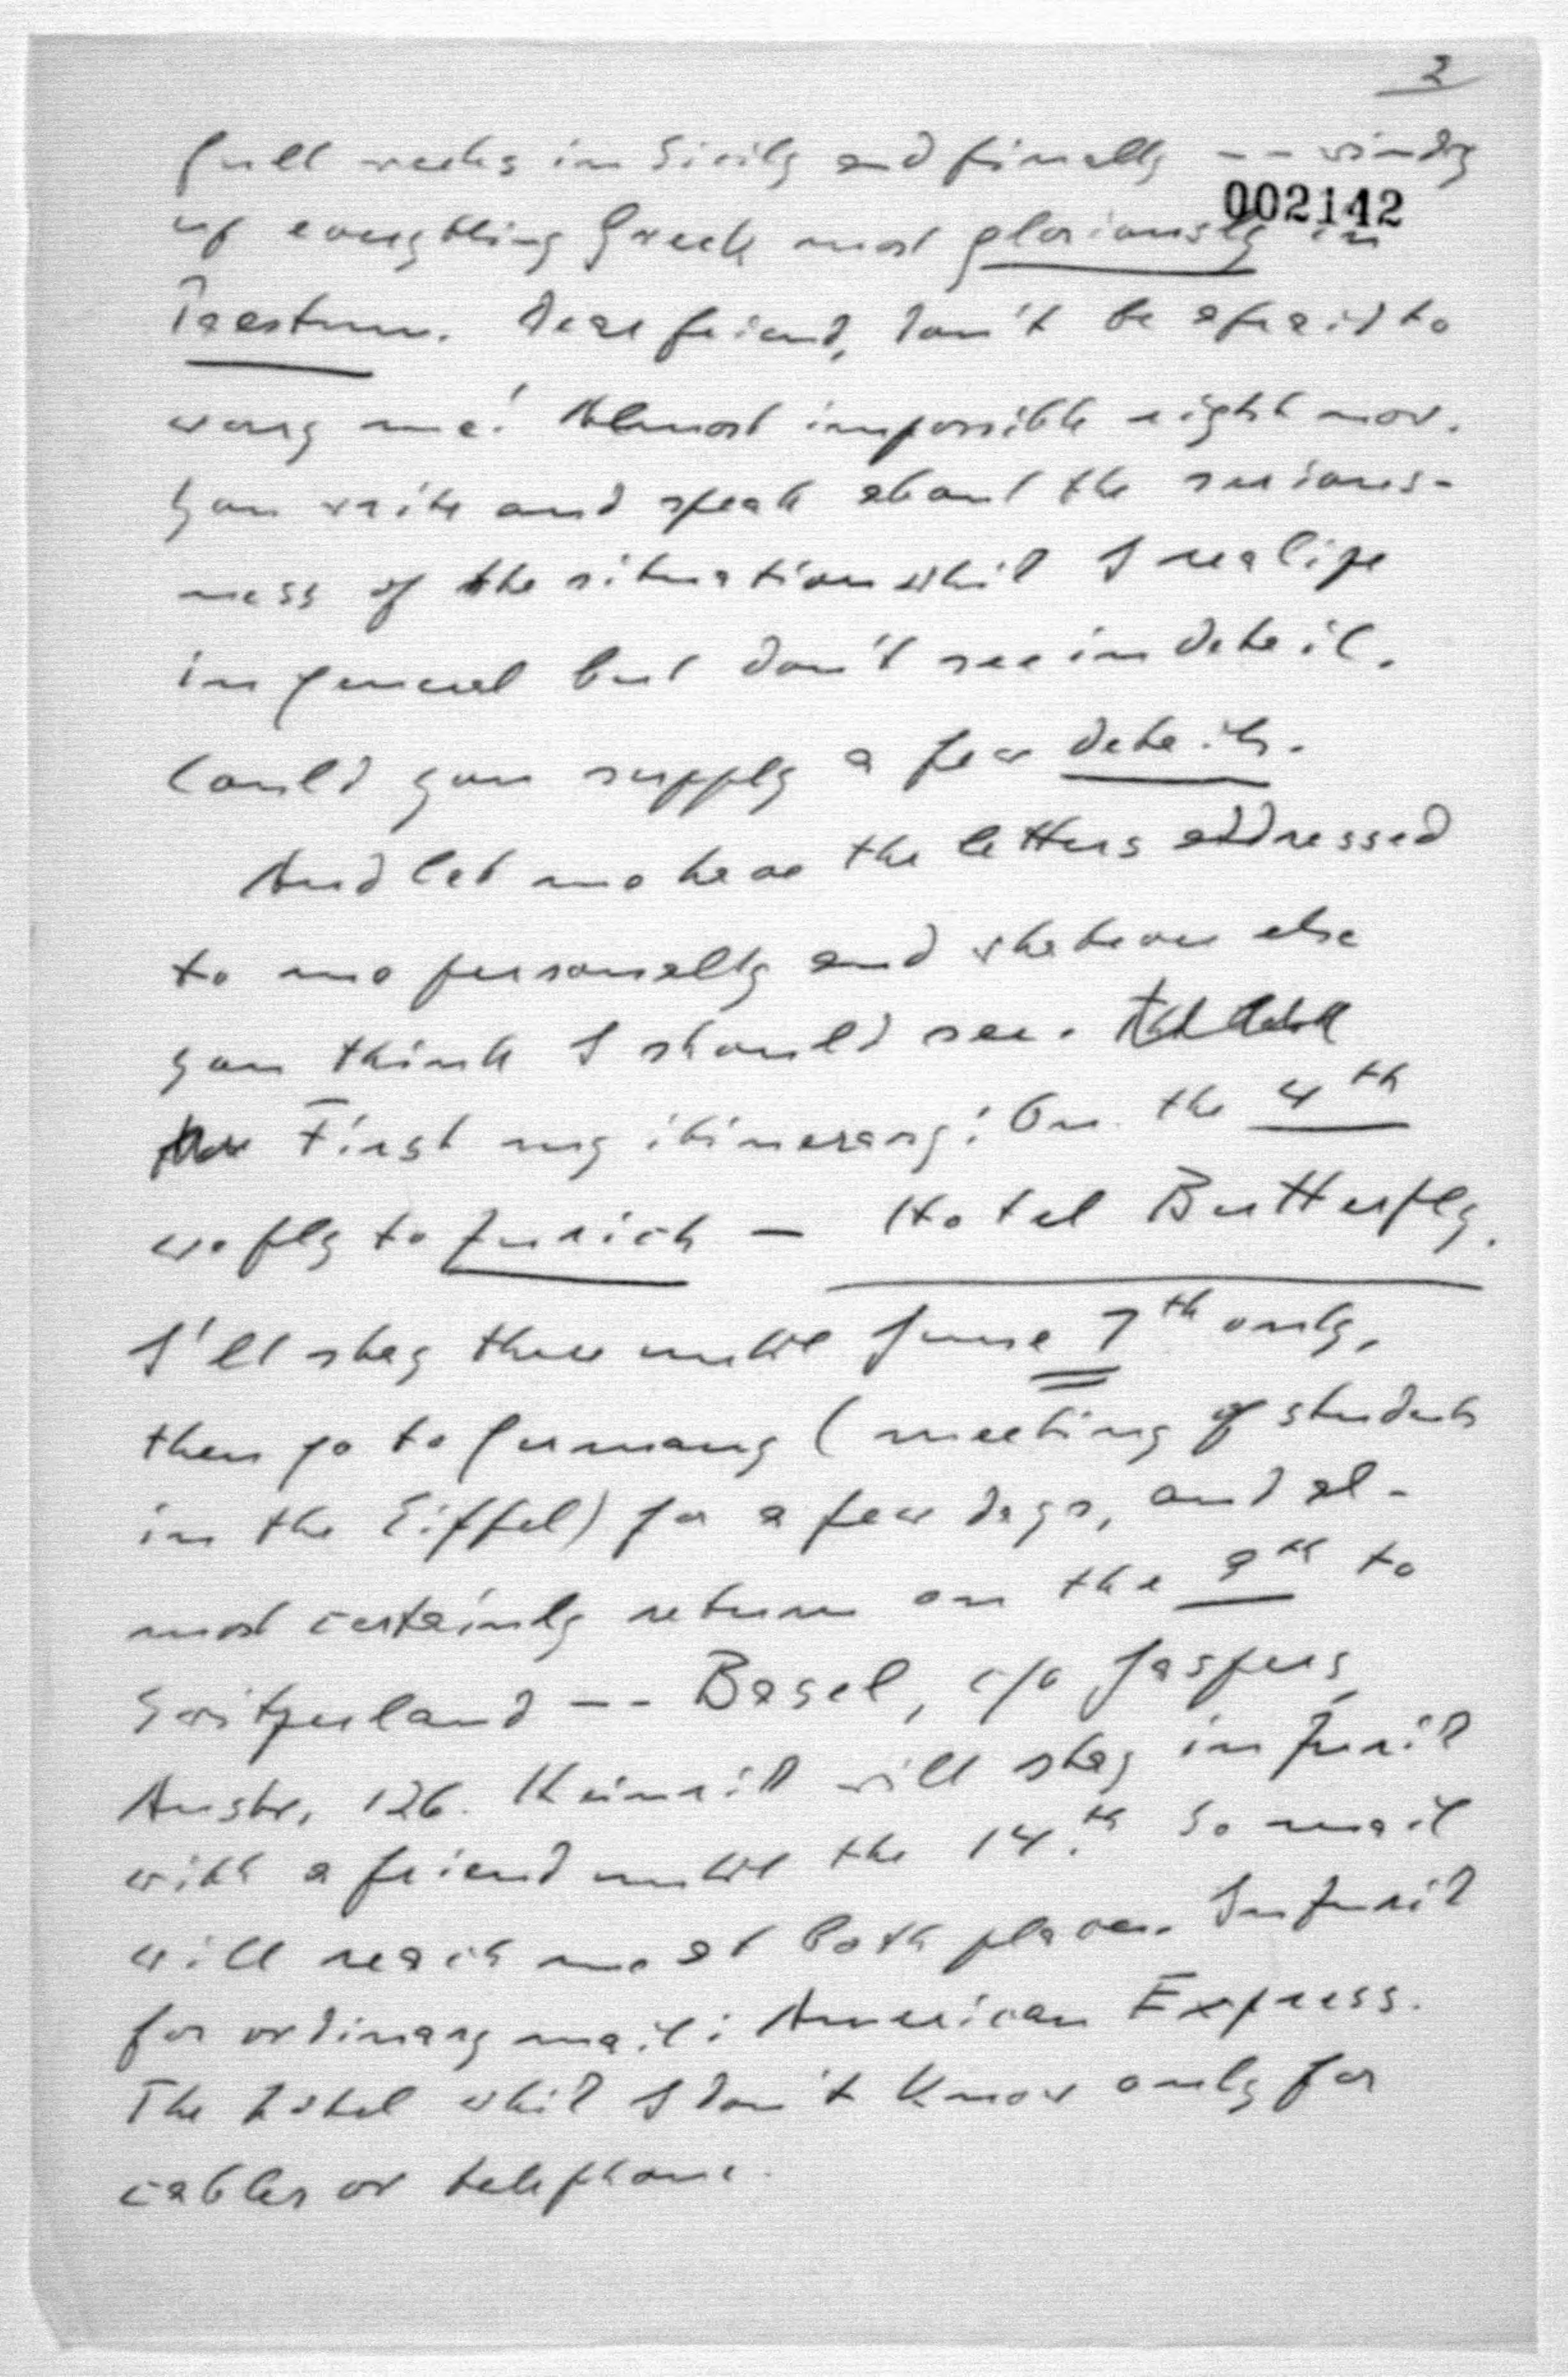 2
full weeks in Sicily and finally -- winding
002142
up everything Greek most gloriously in
Paestum. Dear friend, don't be afraid to
worry me! Almost impossible right now.
You write and speak about the serious-
ness of the situation which I realize
in general but don't see in detail.
Could you supply a few details.
And let me have the letters addressed
to me personally and whatever else
you think I should see.
First my itinerary: On the 4th
we fly to Zurich — Hotel Butterfly.
I'll stay there until June 7th only,
then go to Germany (meeting of students
in the Eiffel) for a few days, and al-
most certainly return on the 9th to
Switzerland -- Basel, c/o Jaspers,
Austr. 126. Heinrich will stay in Zurich
with a friend until the 14.th So mail
will reach me at both places. In Zurich
for ordinary mail: American Express.
The hotel which I don't know only for
cables or telephone.